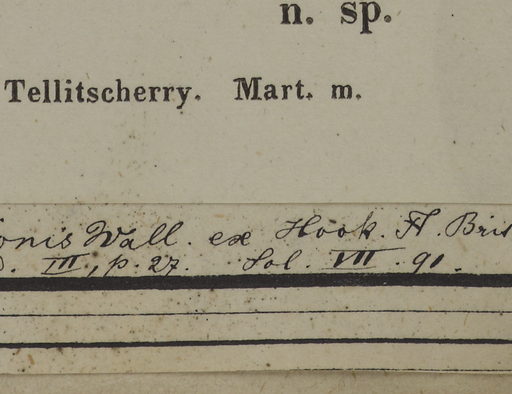 n. sp.
Tellitscherry. Mart. m.
onis Wall. ex Hook. Fl. Bri
III, p. 27. Sol. VII. 91.